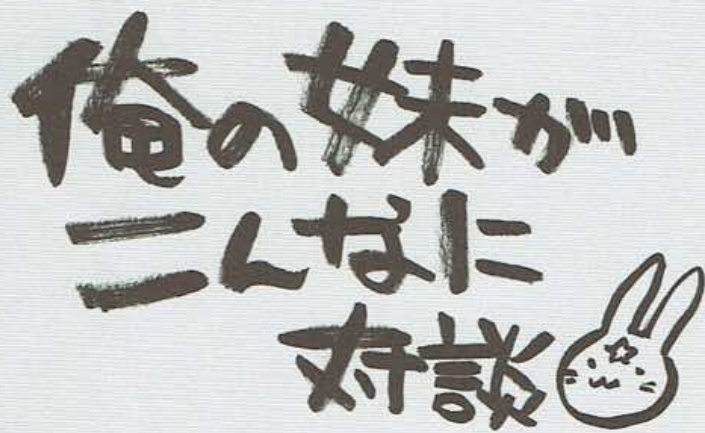 俺の妹が
こんなに
対談